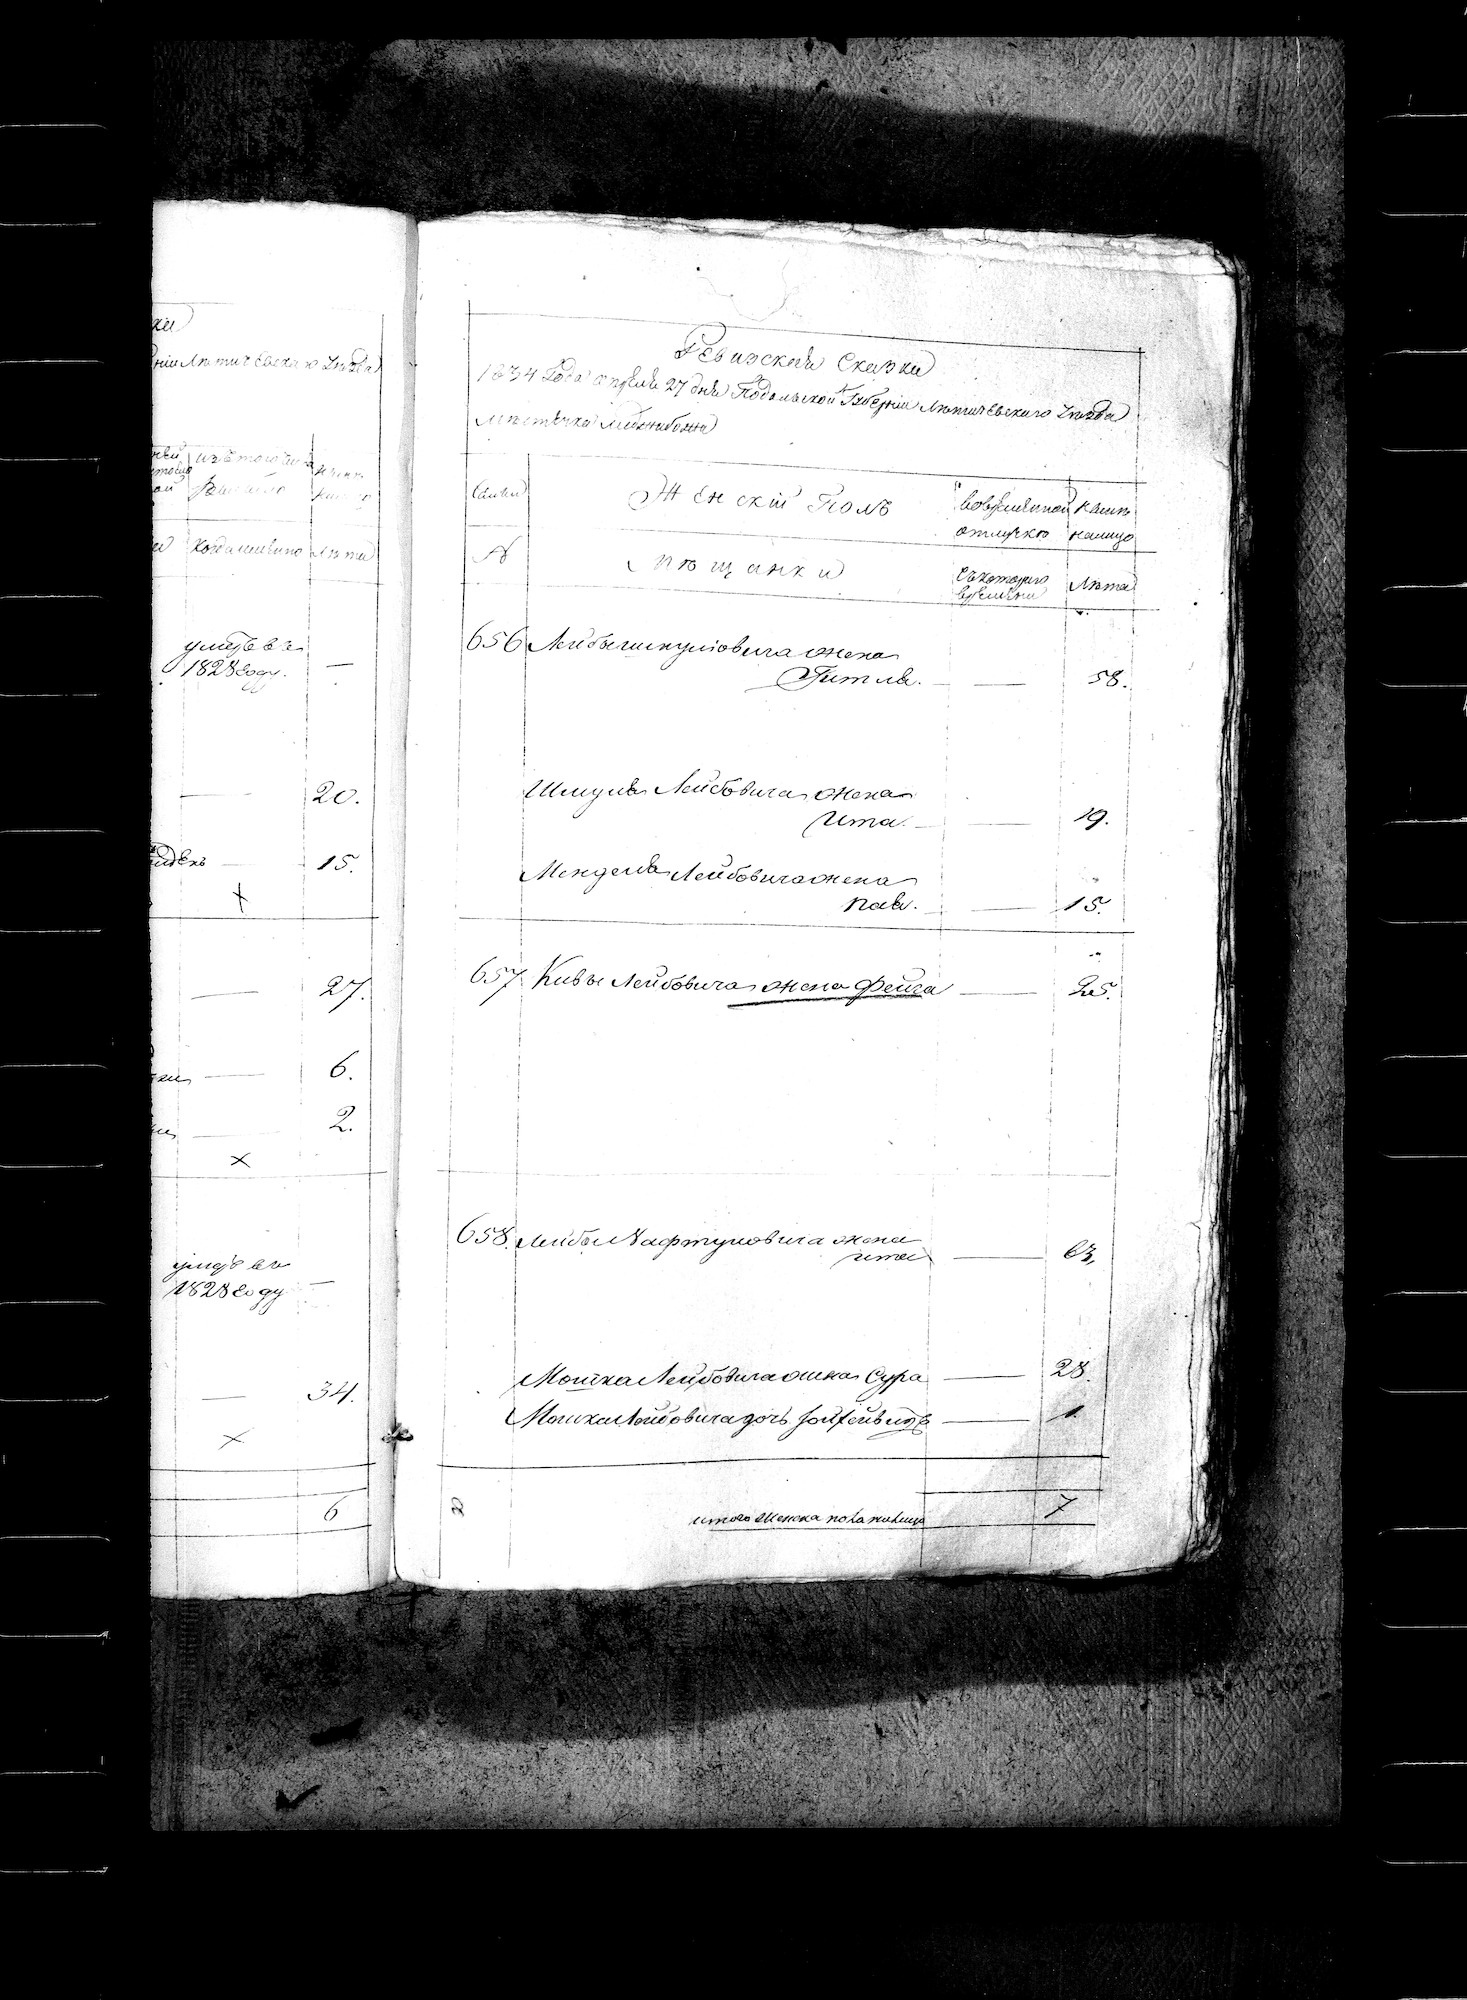 ніи Летичевскаго Уѣзда
Когда именно Лѣта
умеръ въ
1828 году. —
— 20.
— 15.
— 27.
— 6.
— 2.
умеръ въ
1828 году —
— 34.
6
Ревизская Сказка
1834 Года апреля 27 дня Подольской Губерніи Летичевскаго Уѣзда
Мѣстечка Меджибожа
Семьи Женскій Полъ во временной нынѣ
отлучкѣ налицо
№ Мѣщанки съ котораго Лѣта
времени
656 Лейбы Шмуловича жена
Гитля. — 58.
Шмуля Лейбовича жена
Ита. — 19.
Менделя Лейбовича жена
— 15.
657 Кивы Лейбовича жена Фейга — 25.
658. Лейбы Нафтуловича жена
Ита — 63.
Мошка Лейбовича жена Сура — 28.
Мошка Лейбовича дочь — 1.
итого женска пола налицо 7